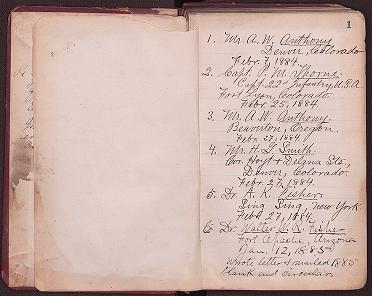 1
1. Mr. A. W. Anthony
Denver, Colorado
Febr. 7, 1884.
2. Capt. P. M. Thorne.
Capt. 22d Infantry, U.S.A.
Fort Lyon, Colorado.
Febr. 25, 1884.
3. Mr. A. W. Anthony.
Beaverton, Oregon.
Febr. 27, 1884.
4. Mr. H. G. Smith.
Cor. Hoyt & Delgna Sts.,
Denver, Colorado.
Febr. 27, 1884.
5. Dr. A. K. Fisher.
Sing Sing, New York.
Febr 27, 1884.
6. Dr. Walter Fisher
Fort Apache, Arizona
12, 1885
Wrote letter & mailed 1885
blank and circular.